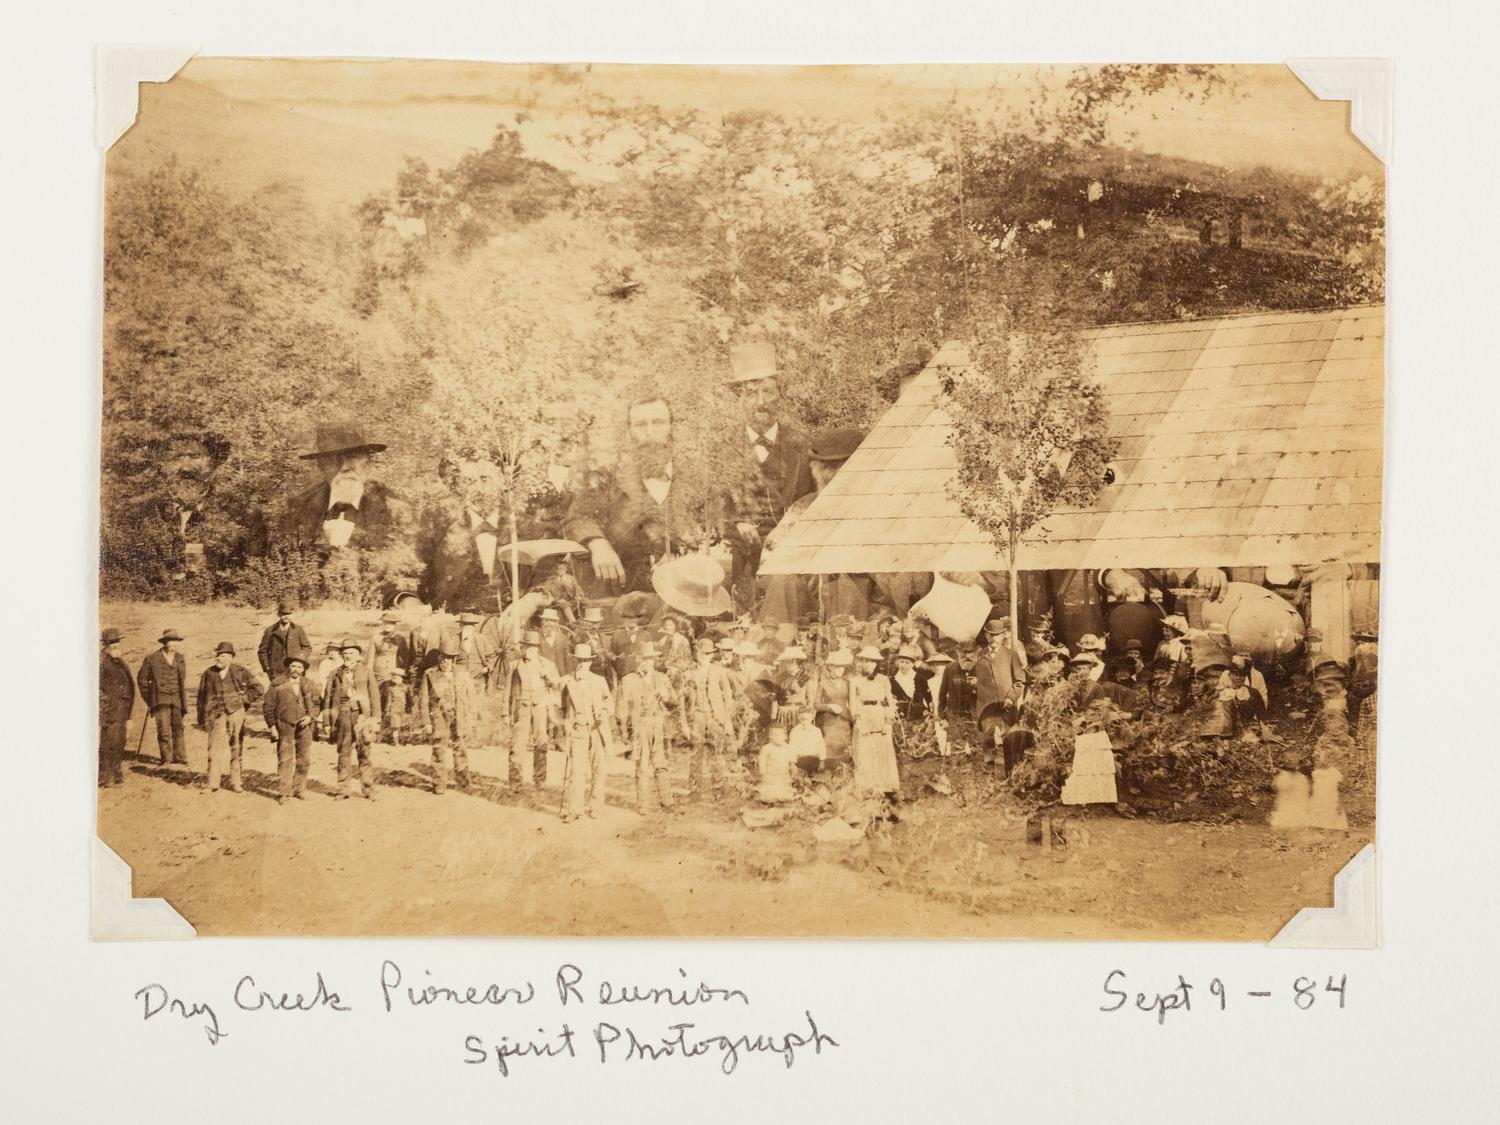 Dry Creek Pioneer Reunion
Sept 9 - 84
Spirit Photograph